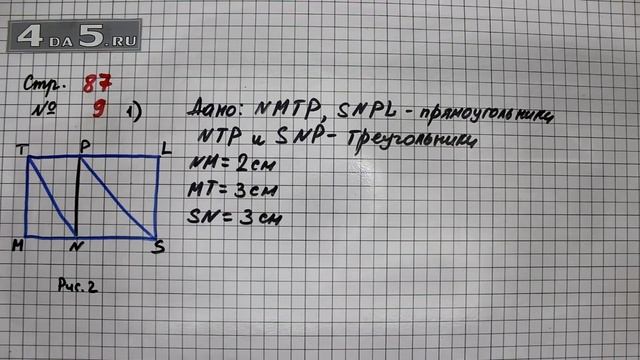 4DA5.RU
Стр. 87
№ 9 1)
Дано: NMTP, SNPL - прямоугольники
NTP и SNP - треугольники
NM = 2 см
MT = 3 см
SN = 3 см
T P L
M N S
Рис. 2